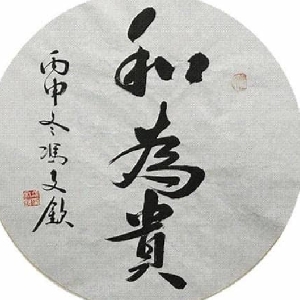 和為貴
丙申冬馮文欽